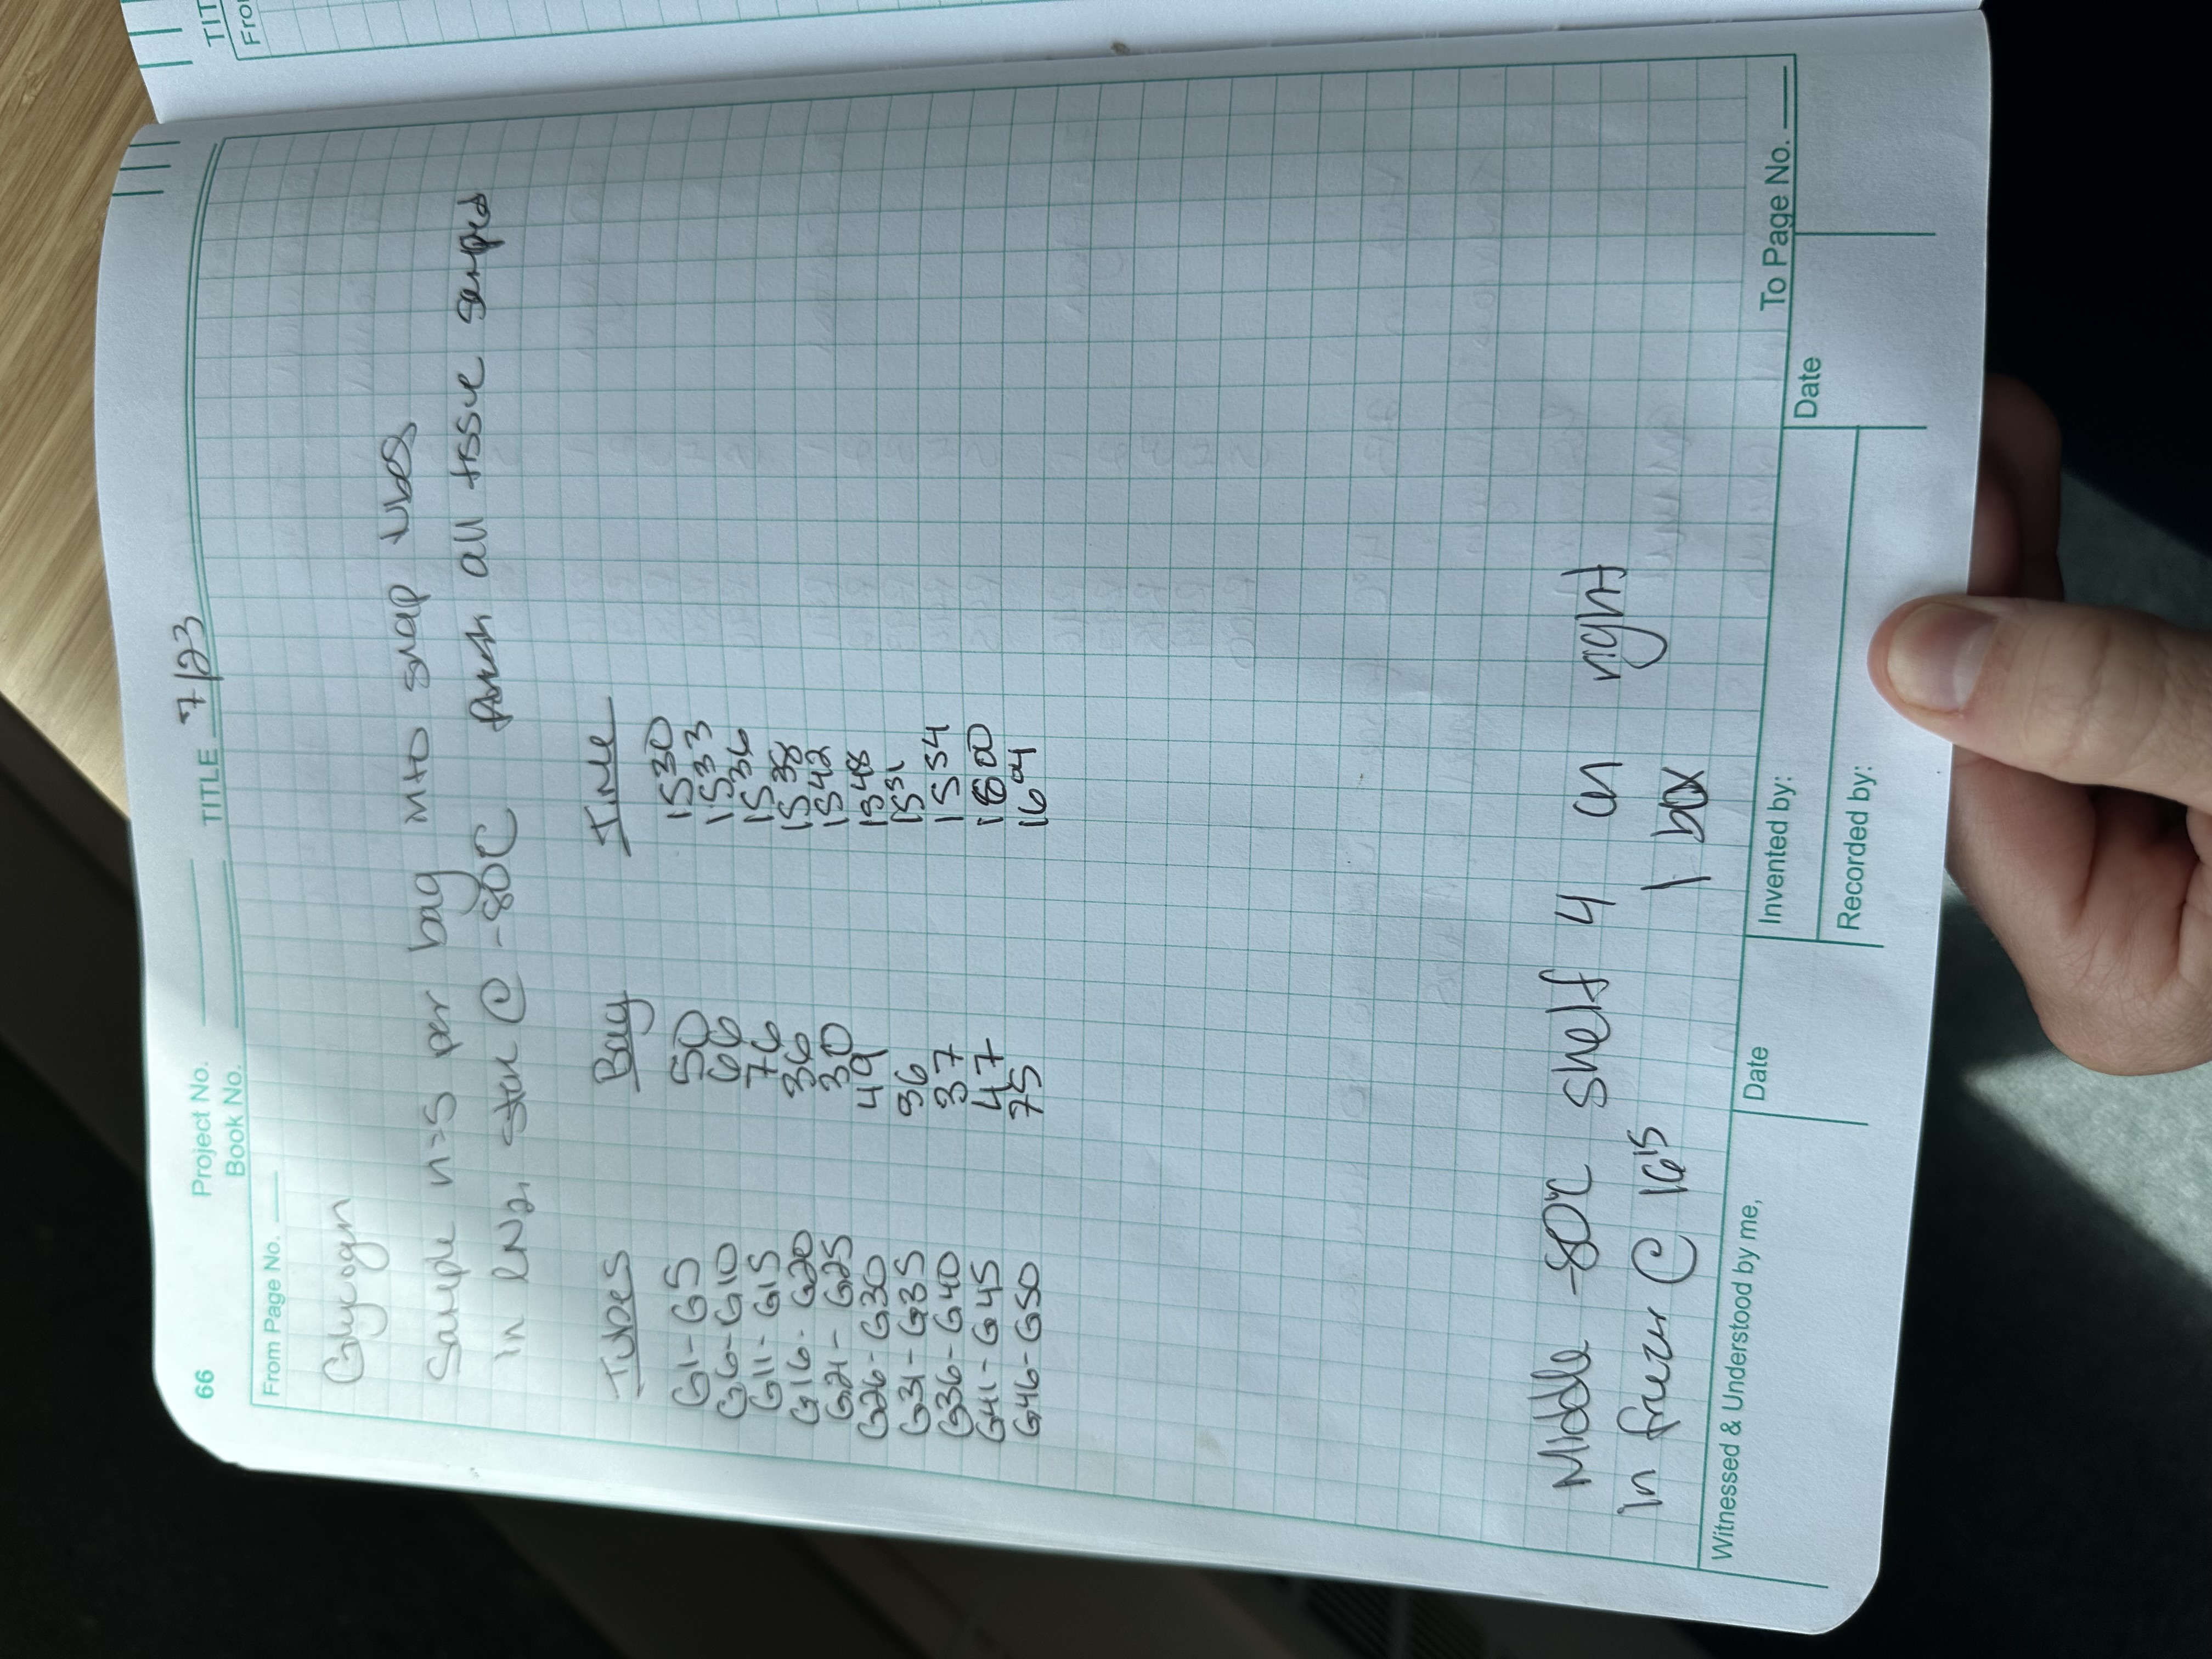 66 Project No. TITLE 7/23
Book No.
From Page No.
Glycogn
Sample n=5 per bag into snap tubes
in LN2, store @ -80C all tissue sampled
Tubes Bag Time
G1-G5 50 1530
G6-G10 66 1533
G11-G15 76 1536
G16-G20 36 1538
G21-G25 30 1542
G26-G30 49 1548
G31-G35 96 1551
G36-G40 37 1554
G41-G45 47 1600
G46-G50 75 1604
Middle -80°C shelf 4 on right
In freezer @ 1615 1 box
Witnessed & Understood by me, Date Invented by: To Page No.
Recorded by: Date
TIT
Fro